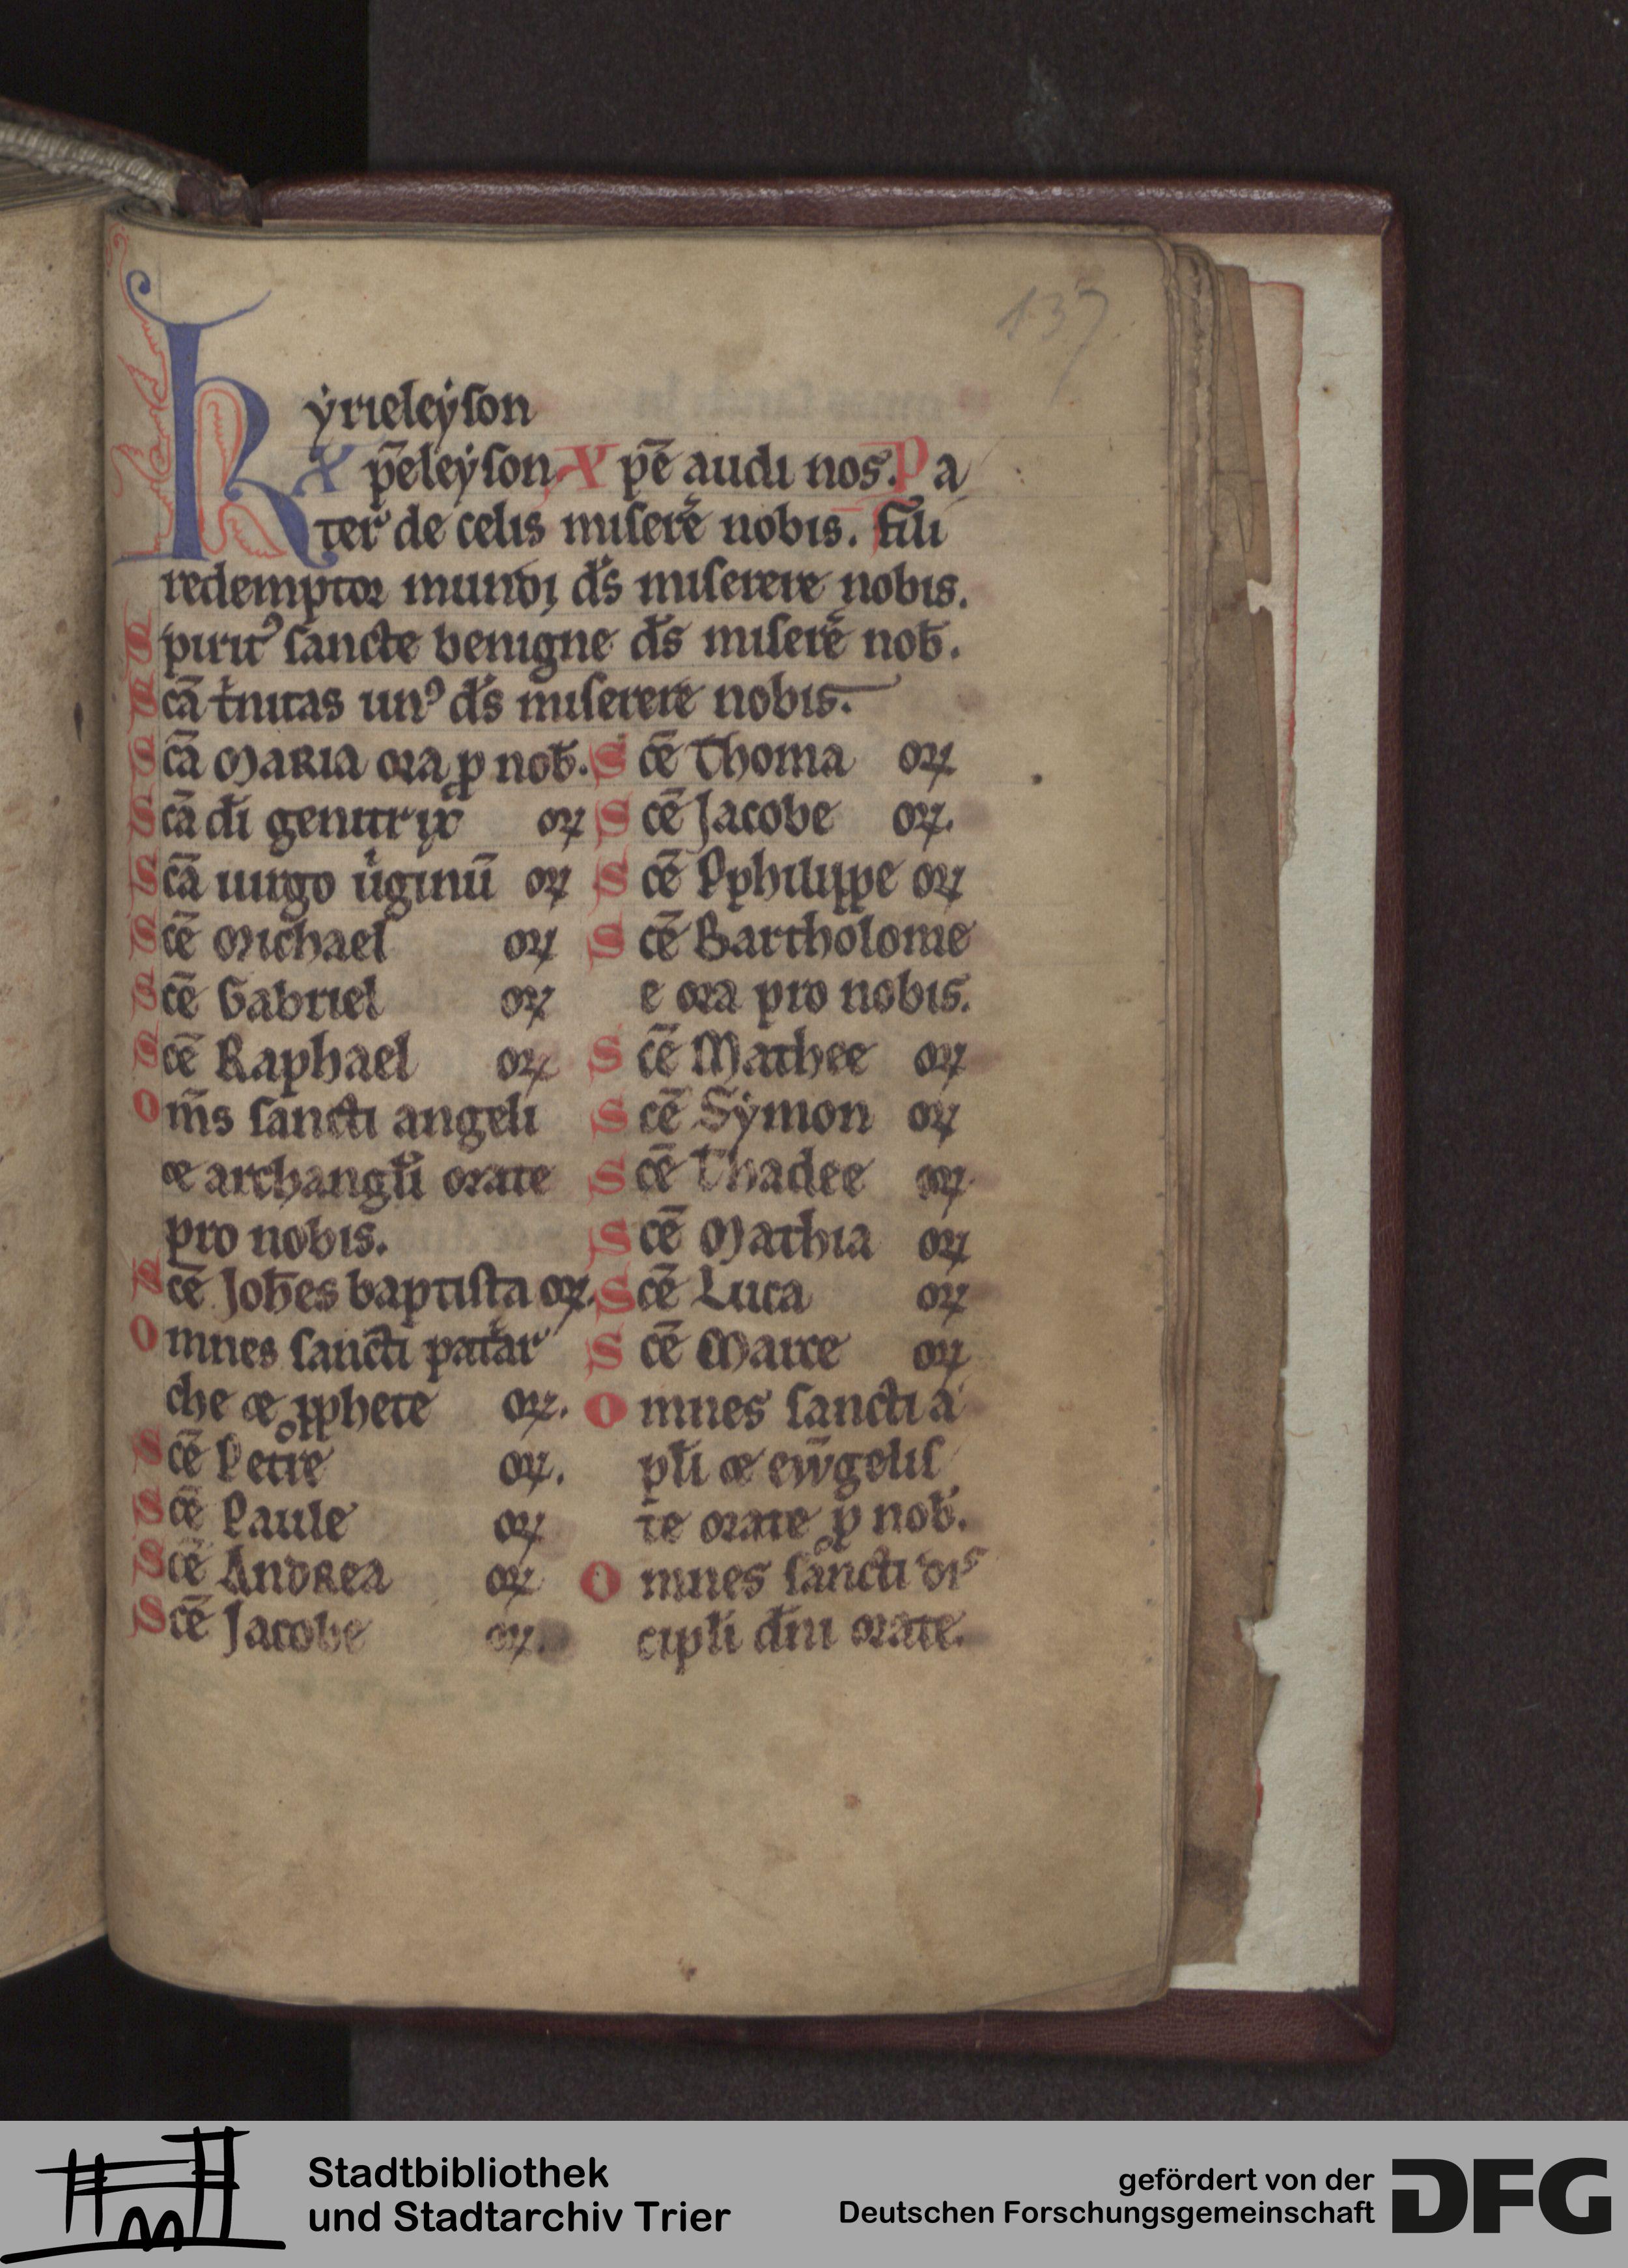 137
Kẏrieleẏſon
Xp̄eleẏſon Xpē audi nos. Pa
ter de celis miſerē nobis. Fili
redemptor mundi ds̄ miſerere nobis.
Spiritꝰ ſancte benigne ds̄ miſerē nob̄.
Scā tinitas unꝰ ds̄ miſerere nobis.
Scā Maria ora ꝓ nob̄.
Scā dī genitrix or̄
Scā uirgo uiginū or̄
Scē Michael or̄
Scē Gabriel or̄
Scē Raphael or̄
Om̄s ſancti angeli
et archangl̄i orate
pro nobis.
Scē Joh̄es baptiſta or̄.
Omnes ſancti patiar
che et ꝓphete or̄.
Scē Petre or̄.
Scē Paule or̄
Scē Andrea or̄
Scē Jacobe or̄.
Scē Thoma or̄
Scē Jacobe or̄.
Scē Pphilippe or̄
Scē Bartholome
e ora pro nobis.
Scē Mathee or̄
Scē Sẏmon or̄
Scē Thadee or̄
Scē Mathia or̄
Scē Luca or̄
Scē Marce or̄
Omnes ſancti a
pl̄i et ew̄geliſ
te orate ꝓ nob̄.
Omnes ſancti diſ
cipl̄i dn̄i orate.
Stadtbibliothek
und Stadtarchiv Trier
gefördert von der
Deutschen Forschungsgemeinschaft
DFG